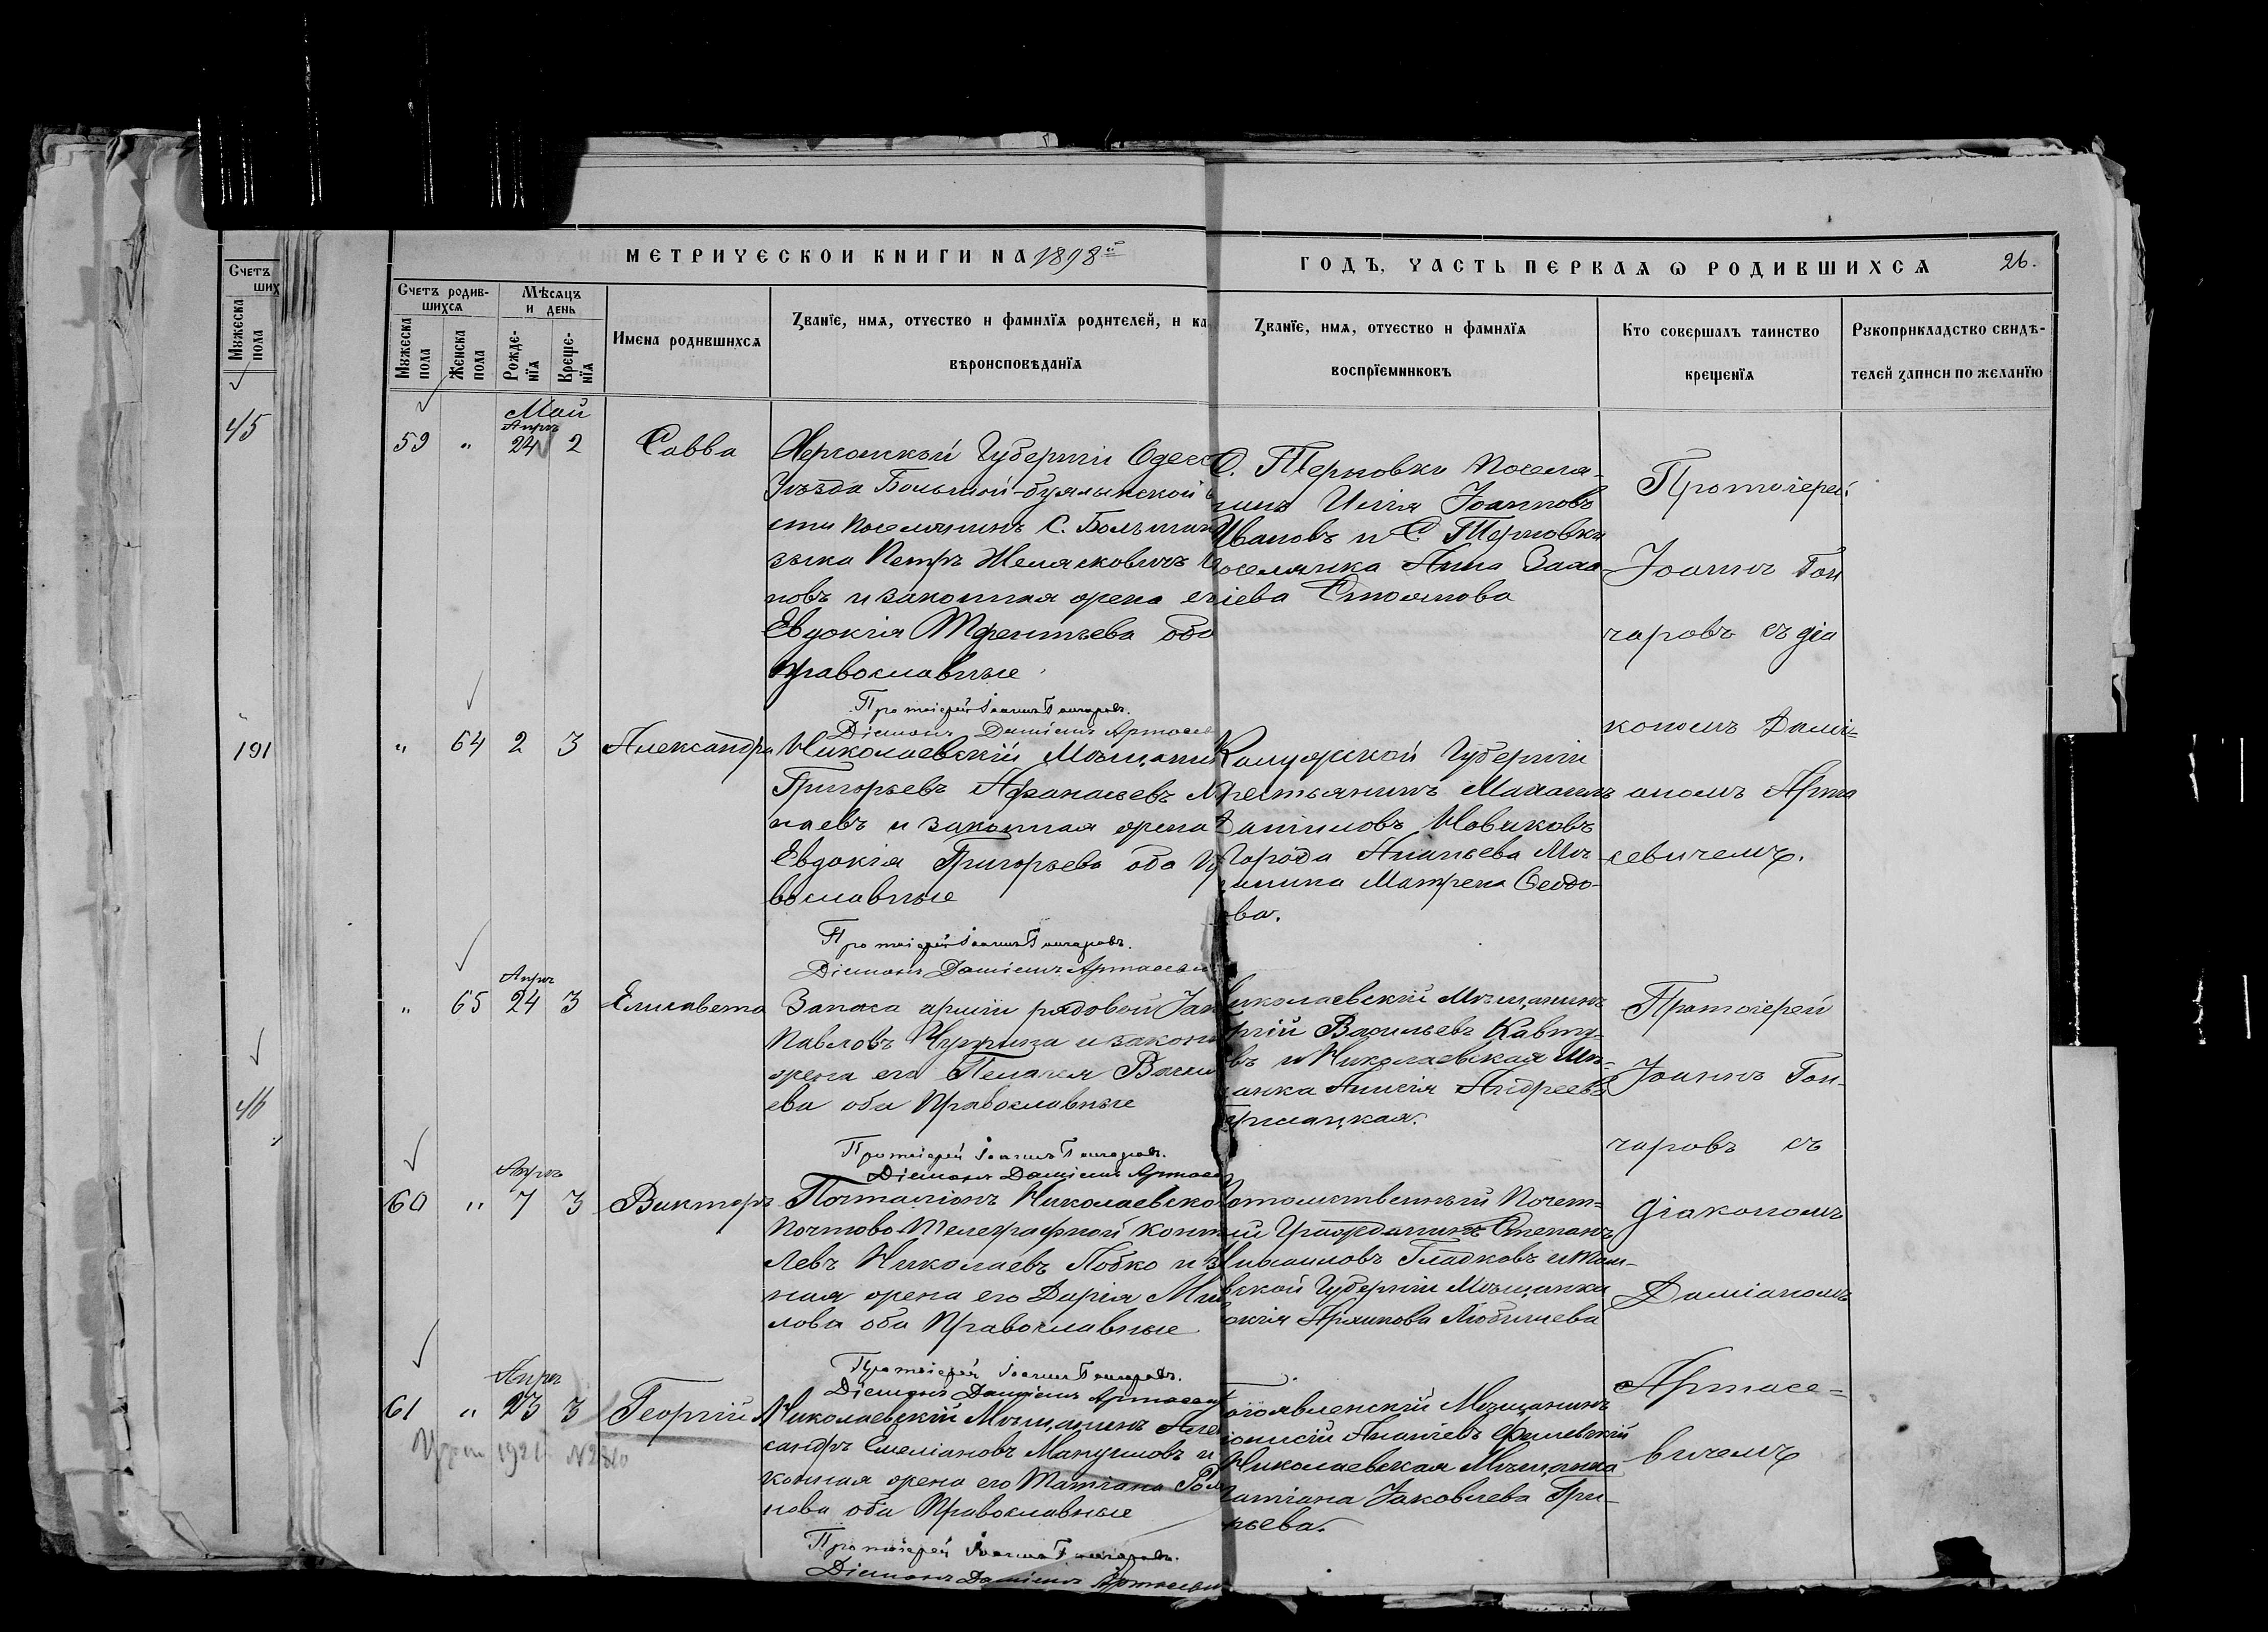 МЕТРИЧЕСКОЙ КНИГИ НА 1898й
ГОДЪ, ЧАСТЬ ПЕРВАЯ Ѡ РОДИВШИХСЯ
26.
Счетъ
ших
Мужеска пола
45
191
46
Счетъ родив-
шихся
Мужеска пола
Женска пола
Мѣсяцъ
и день
Рожде-
нія
Креще-
нія
Имена родившихся
Званіе, имя, отчество и фамилія родителей, и ка
вѣроисповѣданія
Званіе, имя, отчество и фамилія
воспріемниковъ
Кто совершалъ таинство
крещенія
Рукоприкладство свидѣ-
телей записи по желанію
Май
Апрѣ
59 " 24 2
Савва
Херсонской Губерніи Одесс
Уѣзда Большой-буялыкской
сти поселянинъ С. Большаго
зыка Петръ Желясковичъ
новъ и законная жена ег
Евдокія Терентьева оба
православные
Протоіерей Іоаннъ Гончаровъ.
Діаконъ Даміанъ Артасев
С. Терновки поселя-
нинъ Илія Іоанновъ
Ивановъ и С. Терновки
поселянка Анна Заха-
ріева Стоянова
Протоіерей
Іоаннъ Гон
чаровъ съ діа
кономъ Дамі=
аномъ Арта
севичемъ.
" 64 2 3
Александра
Николаевскій Мѣщанин
Григорьевъ Афанасьевъ
наевъ и законная жена
Евдокія Григорьева оба Пр
вославные
Протоіерей Іоаннъ Гончаровъ.
Діаконъ Даміанъ Артасеви
Калужской Губерніи
Крестьянинъ
Даниловъ Новиковъ
Города Ананьева Мѣ
щанина Матрена Феодо-
ова.
Апрѣ
" 65 24 3
Елисавета
Запаса арміи рядовой Іак
Павловъ и законн
жена его Пелагея Васил
ева оба Православные
Протоіерей Іоаннъ Гончаровъ.
Діаконъ Даміанъ Артасе
Николаевскій Мѣщанинъ
ргій Васильевъ Кавту-
въ и Николаевская Мѣ-
щанка Анисія Андреева
Протоіерей
Іоаннъ Гон-
чаровъ съ
діакономъ
Даміаномъ
Артасе=
вичемъ
Апрѣ
60 " 7 3
Викторъ
Почталіонъ Николаевско
Почтово-Телеграфной Конт
Левъ Николаевъ Лобко и з
ная жена его Дарія Ми
лова оба Православные
Протоіерей Іоаннъ Гончаровъ.
Діаконъ Даміанъ Артасев
Потомственный Почет-
ый Гражданинъ Степанъ
Михаиловъ Гладковъ и Там-
вской Губерніи Мѣщанка
окія Архипова Любичева
Апрѣ
61 " 23 3
Георгій
1921 N2310
Николаевскій Мѣщанинъ Алек
сандръ Емеліановъ Мануиловъ и
конная жена его Татіана Ром
нова оба Православные
Протоіерей Іоаннъ Гончаровъ.
Діаконъ Даміанъ Артасеви
Богоявленскій Мѣщанинъ
Діонисій Ананіевъ
Николаевская Мѣщанка
Татіана Іаковлева Гри-
рьева.